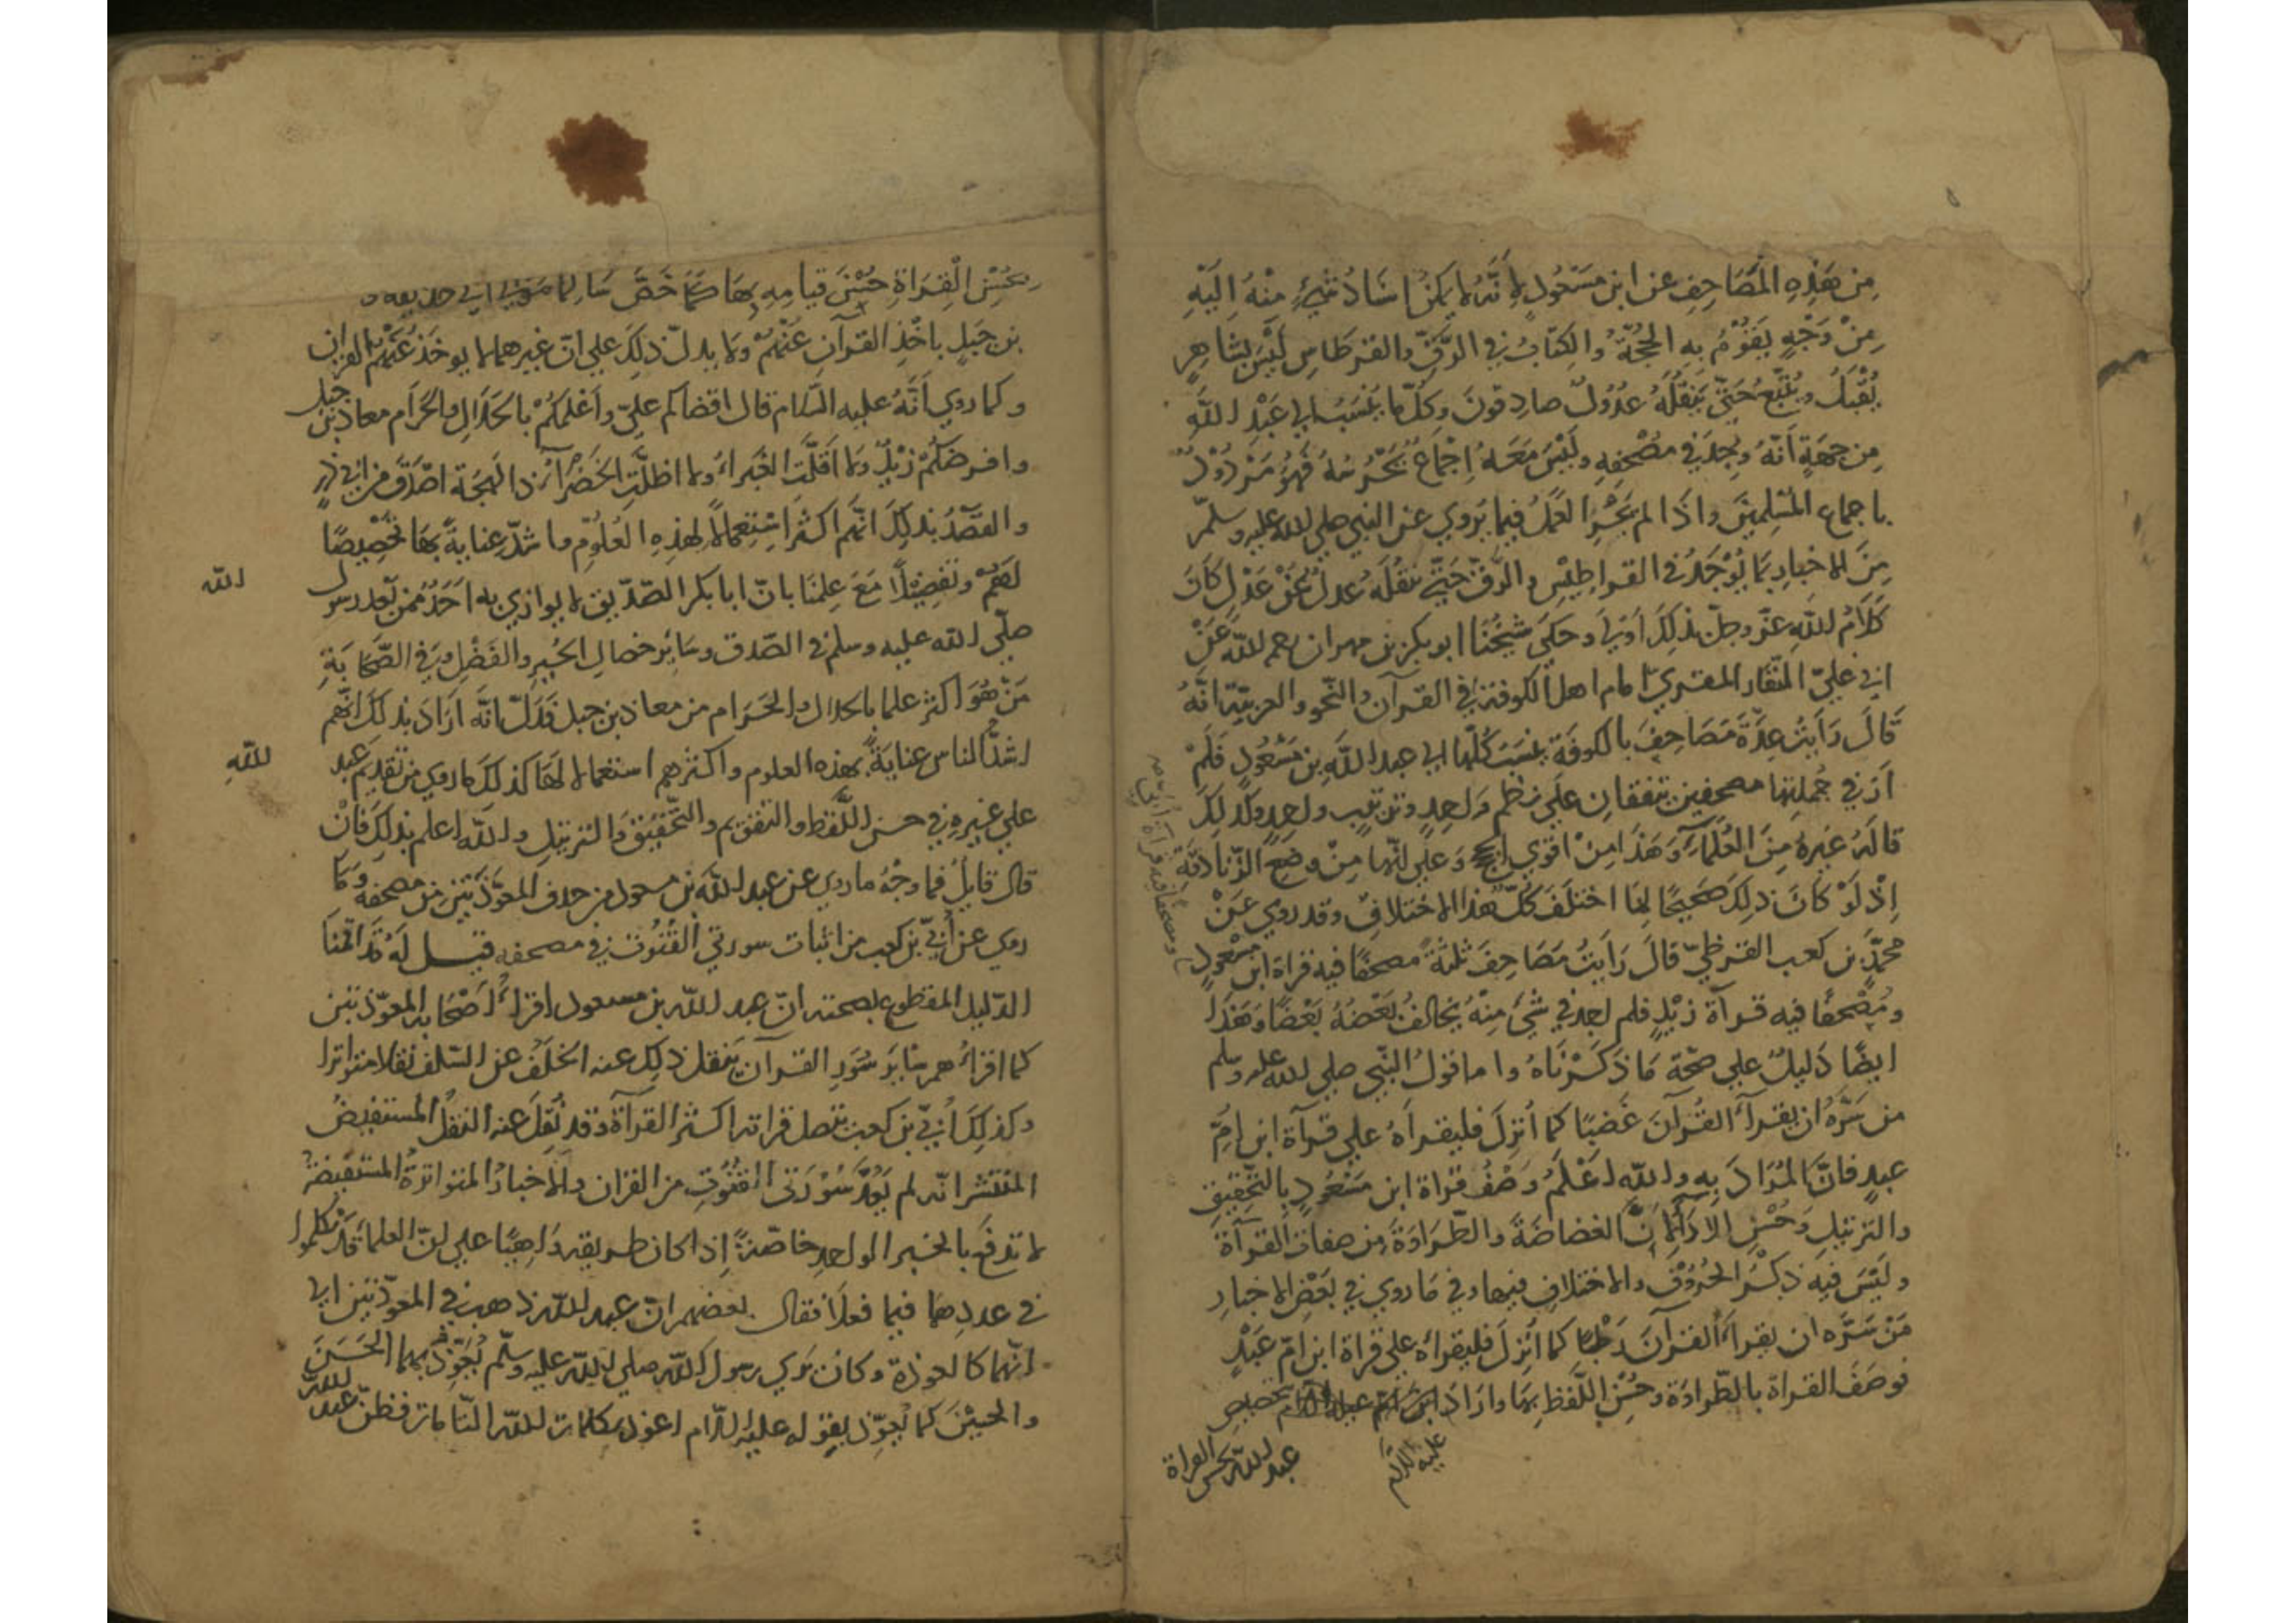 من هذه المصاحف عن ابن مسعود لانه لا يمكن اسناد شيء منه اليه
من وجه يقوم به الحجة والكتاب في الرق والقرطاس ليس بشاهد
يقبل ويتبع حتى ينقله عدول صادقون وكل ما ينسب الي عبد الله
من جهة انه وجد في مصحفه وليس معه اجماع يحرسه فهو مردود
باجماع المسلمين واذا لم يجز العمل فيما يروي عن النبي صلي الله عليه وسلم
من الاخبار بما يوجد في القراطيس والرق حتى ينقله عدل عن عدل كان
كلام الله عز وجل بذلك اولي وحكي شيخنا ابو بكر بن مهران رحمه الله عن
ابي علي النقار المقري امام اهل الكوفة في القرآن والنحو والعربية انه
قال رايت عدة مصاحف بالكوفة ينسب كلها الي عبد الله بن مسعود فلم
ار في جملتها مصحفين يتفقان علي نظم واحد وترتيب واحد وكذلك
قاله غيره من العلماء وهذا من اقوي الحجج وعلي انها من وضع الزنادقة
اذ لو كان ذلك صحيحا لما اختلف كل هذا الاختلاف وقد روي عن
محمد بن كعب القرظي قال رايت مصاحف ثلثة مصحفا فيه قراة ابن مسعود
ومصحفا فيه قراة ابي
ومصحفا فيه قرآة زيد فلم اجد في شي منه يخالف بعضه بعضا وهذا
ايضا دليل علي صحة ما ذكرناه واما قول النبي صلي الله عليه وسلم
من سره ان يقرأ القرآن غضبا كما أنزل فليقرأه علي قرآة ابن ام
عبد فان المراد به والله اعلم وصف قراة ابن مسعود بالتحقيق
والترتيل وحسن الاداء لان الغضاضة والطراوة من صفات القرآة
وليس فيه ذكر الحروف والاختلاف فيها وفي ما روي في بعض الاخبار
من سره ان يقرأ القرآن رطبا كما أنزل فليقرأه علي قراة ابن ام عبد
فوصف القراة بالطراوة وحسن اللفظ بها واراد عليه السلم تخصيص
عبد الله بحسن القراة
بحسن القراة حسن قيامه بها كما خص سالما مولي ابي حذيفة و
بن جبل باخذ القرآن عنهم ولا يدل ذلك علي ان غيرهما لا يوخذ عنهم القران
وكما روي انه عليه السلام قال اقضاكم علي واعلمكم بالحلال والحرام معاذ بن جبل
وافرضكم زيد وما اقلت الغبراء ولا اظلت الخضراء ذا لهجة اصدق من ابي ذر
والقصد بذلك انهم اكثر استعمالا لهذه العلوم واشد عناية بها تخصيصا
لهم وتفضيلا مع علمنا بان ابا بكر الصديق لا يوازي به احد ممن بعد رسول الله
صلي الله عليه وسلم في الصدق وساير خصال الخير والفضل وفي الصحابة
من هو اكثر علما بالحلال والحرام من معاذ بن جبل فدل انه اراد بذلك انهم
اشد الناس عناية بهذه العلوم واكثرهم استعمالا لها كذلك ما روي من تقديم عبد الله
علي غيره في حسن اللفظ والتقويم والتحقيق والترتيل والله اعلم بذلك فان
قال قايل فما وجه ما روي عن عبد الله بن مسعود من حذف المعوذتين من مصحفه وما
روي عن أبي بن كعب من اثبات سورتي القنوت في مصحفه قيل له قد اقمنا
الدليل المقطوع بصحته ان عبد الله بن مسعود اقرأ اصحابه المعوذتين
كما اقرأهم ساير سور القرآن ينقل ذلك عنه الخلف عن السلف نقلا متواترا
وكذلك أبي بن كعب تتصل قراته اكثر القرآة وقد نقل عنه النقل المستفيض
المنتشر انه لم يعد سورتي القنوت من القران والاخبار المتواترة المستفيضة
لا تدفع بالخبر الواحد خاصة اذا كان طريقه واهيا علي ان العلما قد تكلموا
في عددهما فيما فعلا فقال بعضهم ان عبد الله ذهب في المعوذتين الي
انهما كالعوذة وكان يري رسول الله صلي الله عليه وسلم يعوذ بهما الحسن
والحسين كما يعوذ بقوله عليه السلام اعوذ بكلمات الله التامات فظن عبد الله